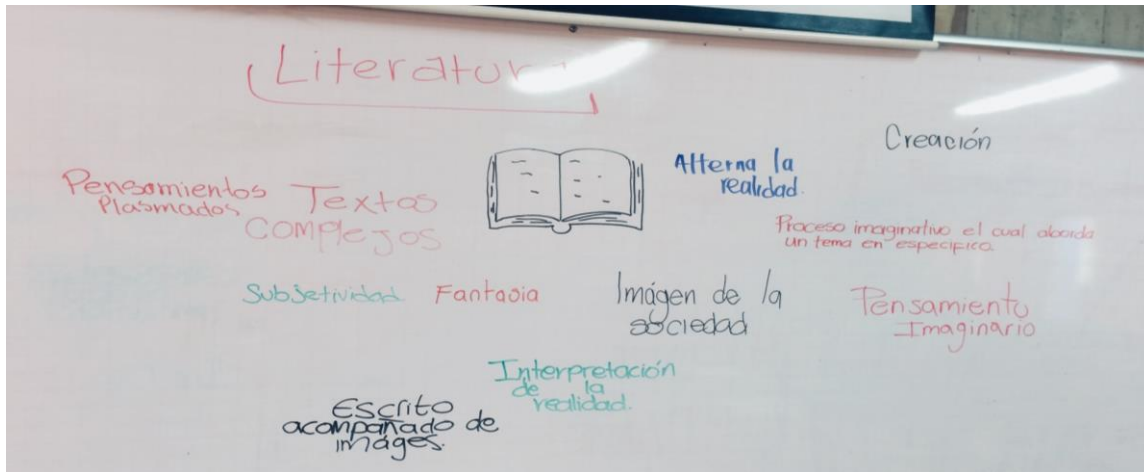 Literatura
Creación
Alterna la
realidad.
Pensamientos
Plasmados
Textos
Complejos
Proceso imaginativo el cual aborda
un tema en especifico.
Subjetividad
Fantasia
Imágen de la
sociedad
Pensamiento
Imaginario
Interpretación
de la
realidad.
Escrito
acompañado de
imáges.